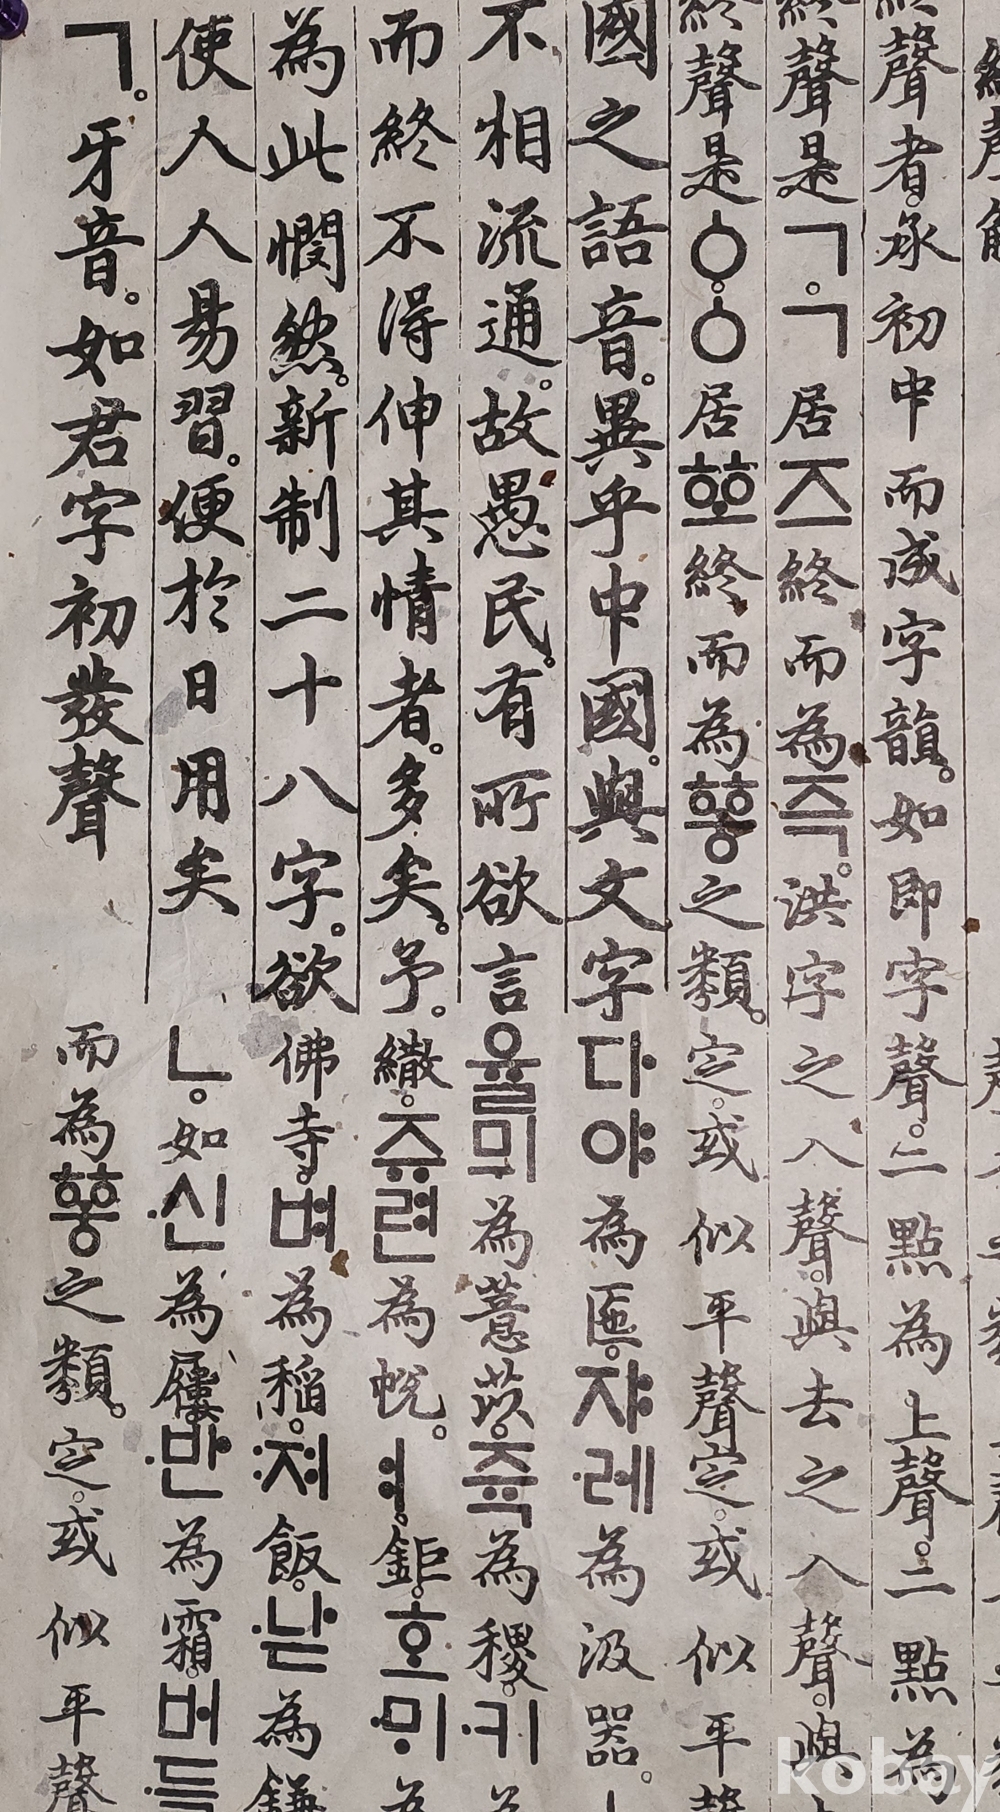 終聲者。承初中而成字韻。如即字聲。二點為上聲。二點為
終聲是。ㄱ。ㄱ居즈終而為즉。洪字之入聲。與去之入聲。與
終聲是。ㆁ。ㆁ居ᅘᅩ終而為ᅘᅩᆼ之類。定。或似平聲定。或似平聲
國之語音。異乎中國。與文字다야為匜。쟈레為汲器。
不相流通。故愚民。有所欲言율믜為薏苡。쥭為稷。키為
而終不得伸其情者。多矣。予。繖。쥬련為帨。ㅕ。鉅。호미為
為此憫然。新制二十八字。欲佛寺。벼為稲。져飯。낟為鎌
使人人易習。便於日用矣ㄴ。如신為屨。반為霜。버들
ㄱ。牙音。如君字初發聲而為ᅘᅩᆼ之類。定。或似平聲
kobay